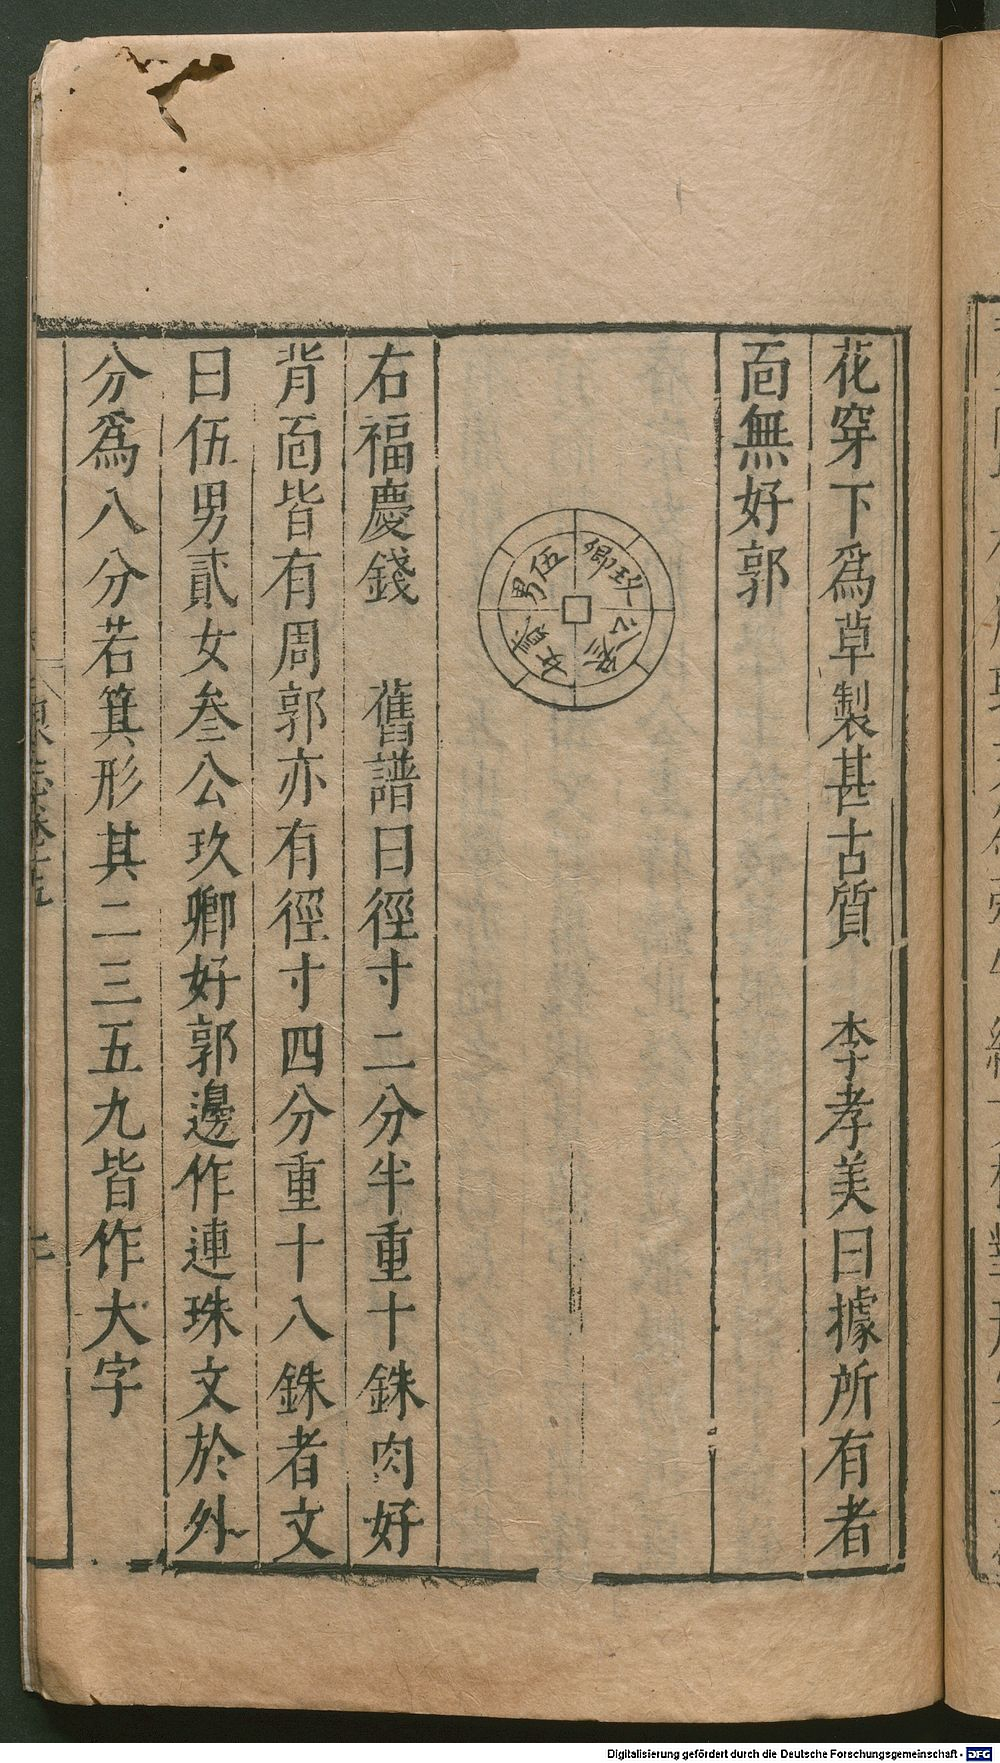 花穿下爲草製甚古質　李孝美曰據所有者
靣無好郭
伍男
貳女
叁公
玖卿
右福慶錢　舊譜曰徑寸二分半重十銖肉好
背靣皆有周郭亦有徑寸四分重十八銖者文
曰伍男貳女叁公玖卿好郭邊作連珠文於外
分爲八分若箕形其二三五九皆作大字
泉志卷十五
Digitalisierung gefördert durch die Deutsche Forschungsgemeinschaft - DFG